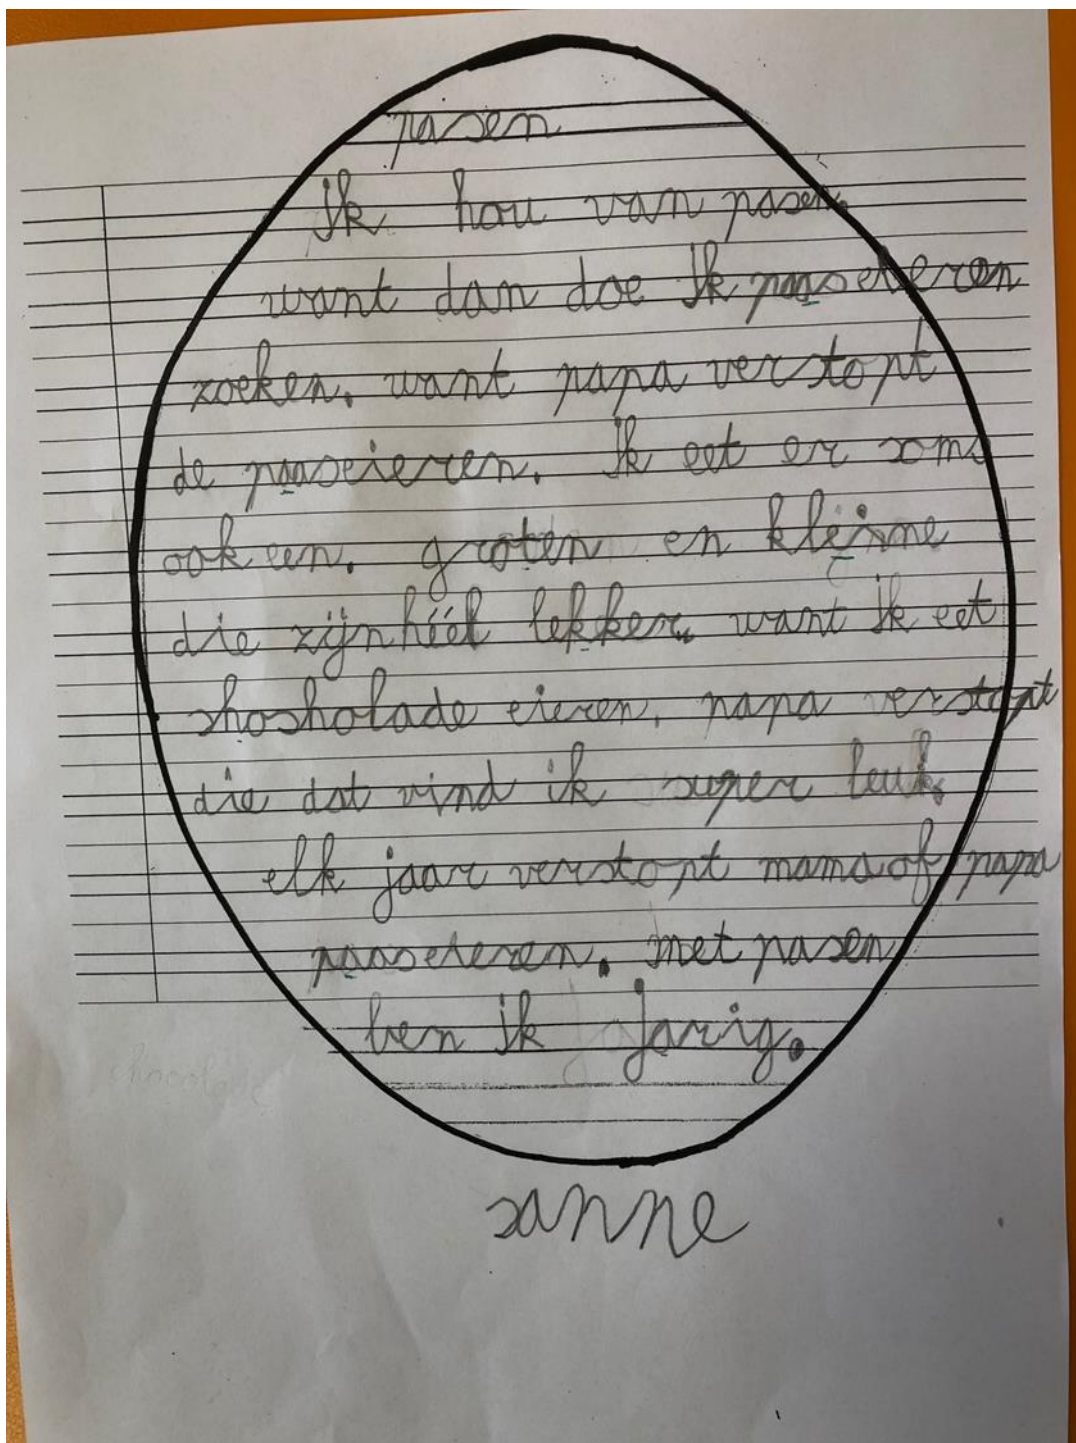 pasen
Ik hou van pasen.
want dan doe Ik paaseieren
zoeken. want papa verstopt
de paaseieren. Ik eet er soms
ook een. groten en kleine
die zijn héél lekker. want Ik eet
shosholade eieren. papa verstopt
die dat vind ik super leuk.
elk jaar verstopt mama of papa
paaseieren. met pasen
ben ik jarig.
sanne